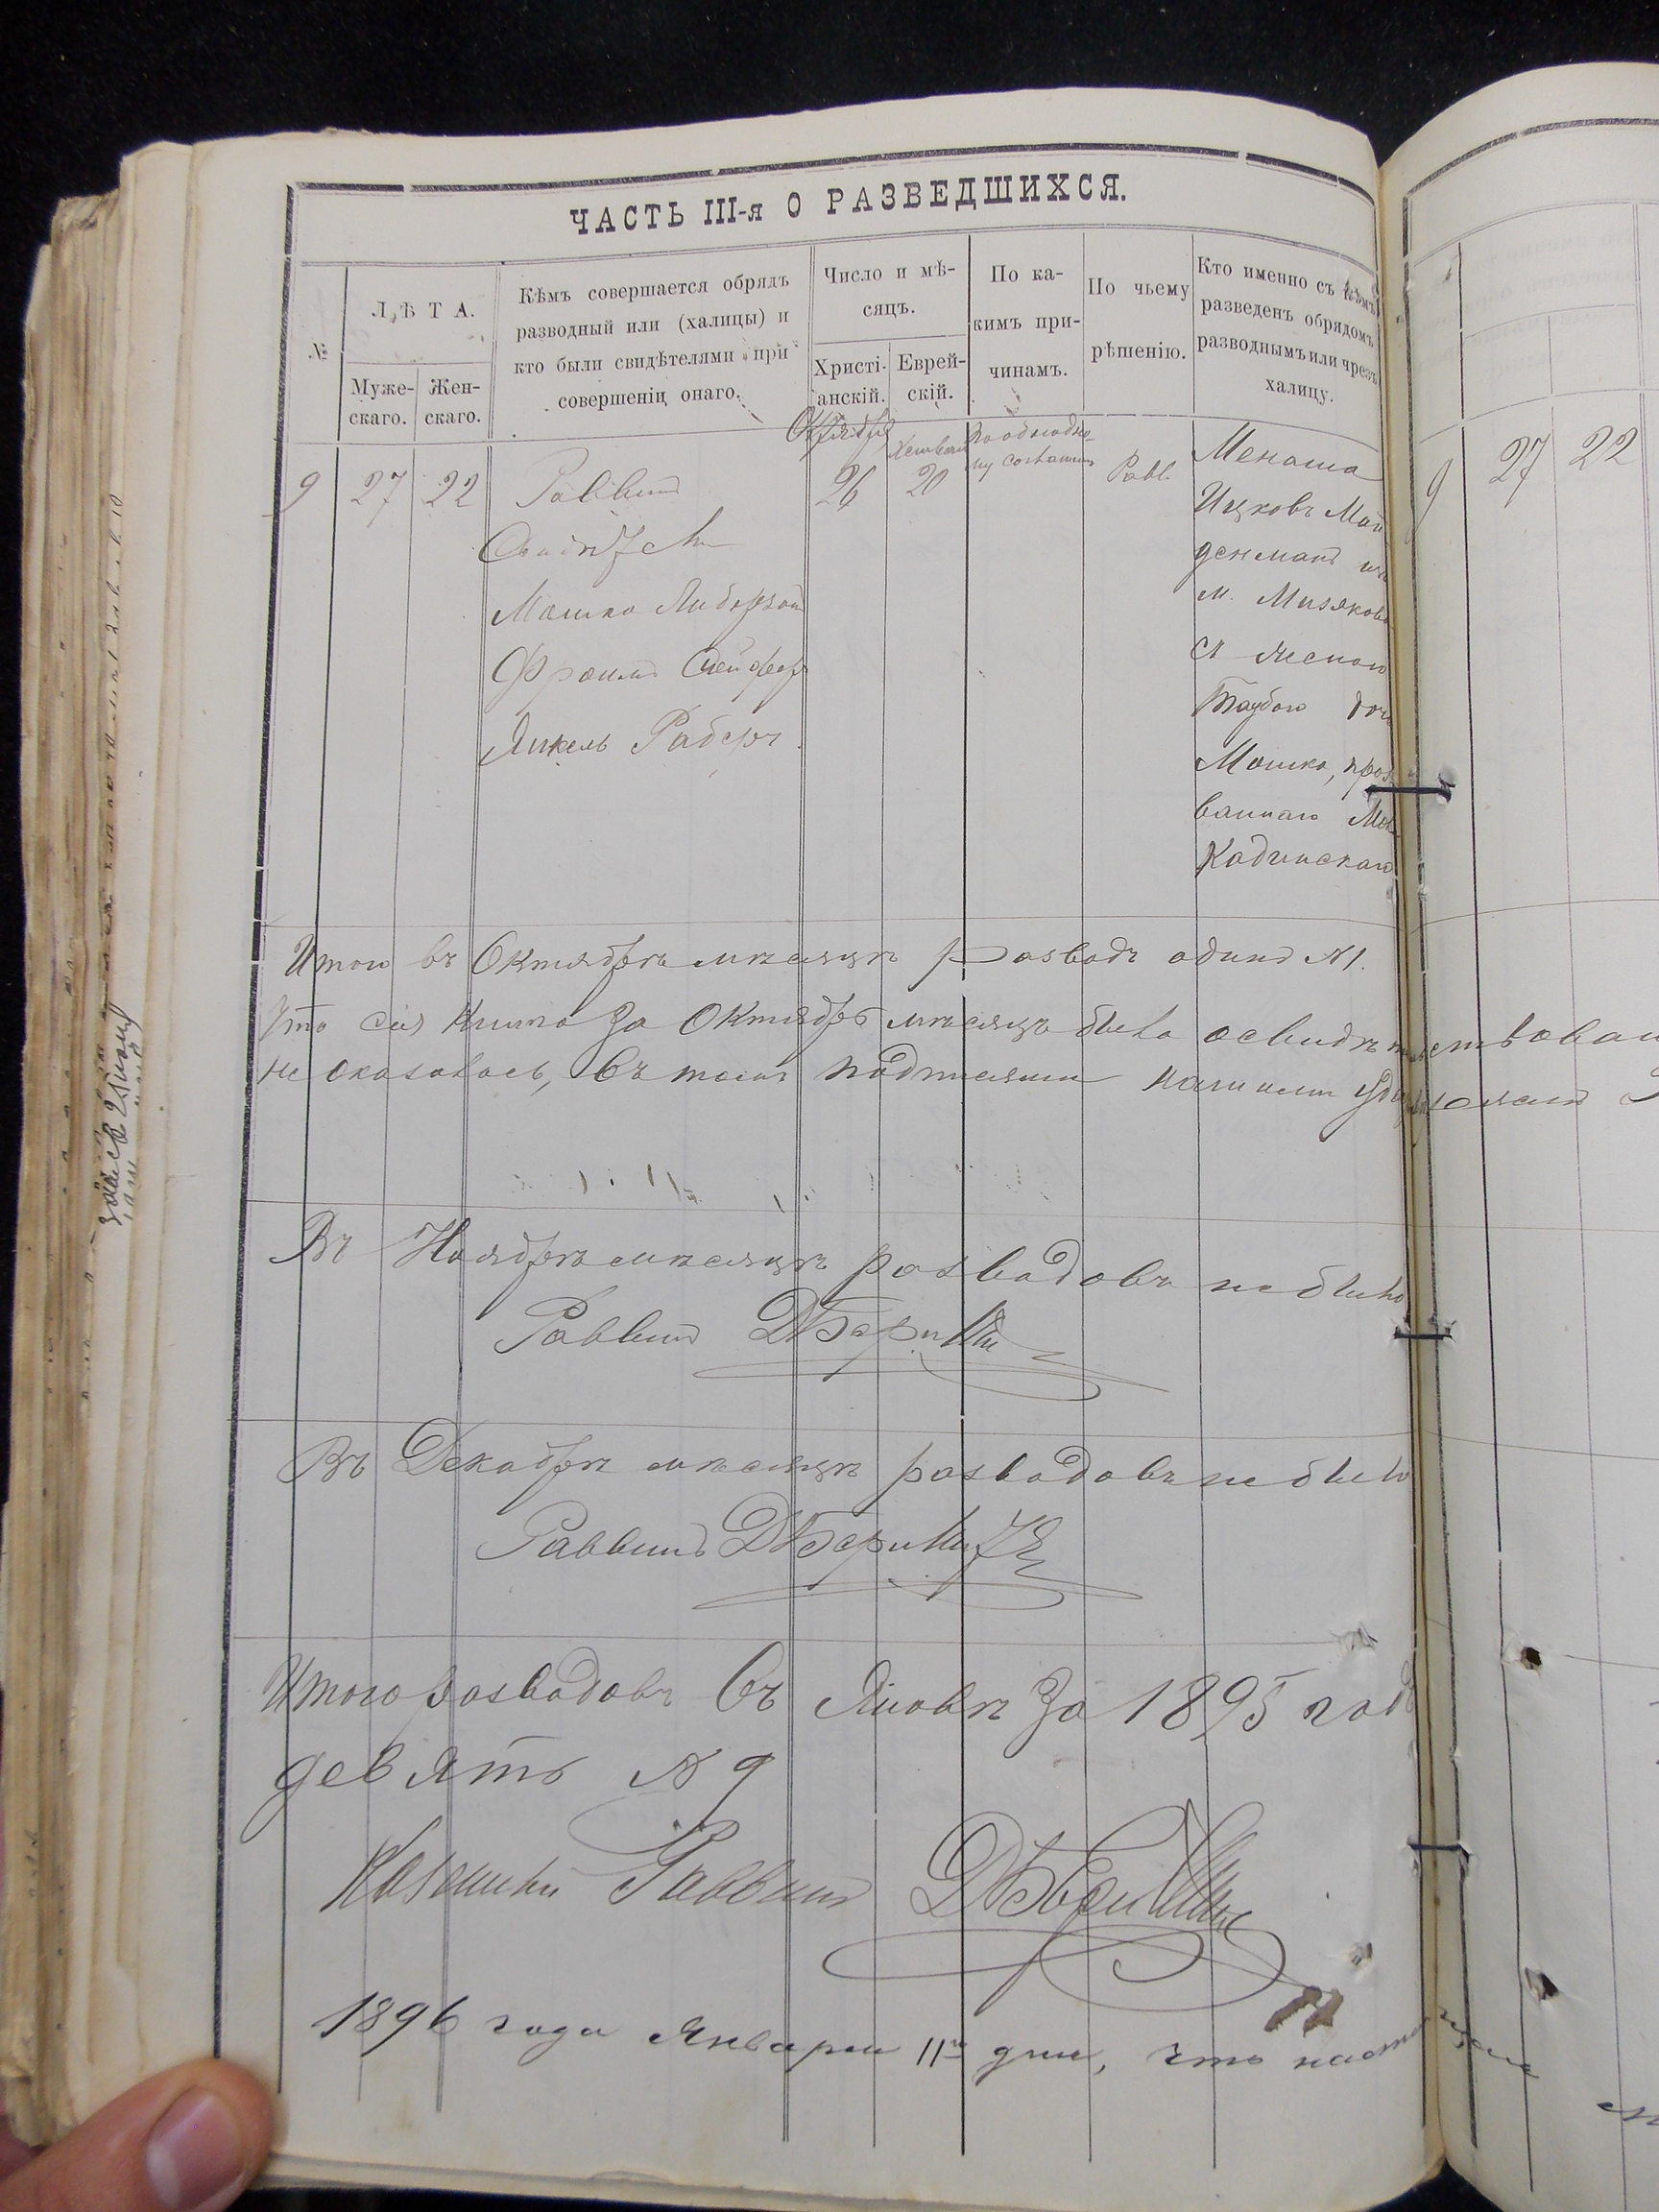 ЧАСТЬ III-я О РАЗВЕДШИХСЯ.
№
ЛѢТА.
Муже-
скаго.
Жен-
скаго.
Кѣмъ совершается обрядъ
разводный или (халицы) и
кто были свидѣтелями при
совершеніи онаго.
Число и мѣ-
сяцъ.
Христі-
анскій.
Еврей-
скій.
По ка-
кимъ при-
чинамъ.
По чьему
рѣшенію.
Кто именно съ кѣмъ
разведенъ обрядомъ
разводнымъ или чрезъ
халицу.
9 27 22
Раввинъ
Мошко
Янкель
Октября
26
20
По обоюдно-
му
Равв.
Менаша
Ицковъ Май
денманъ изъ
м. Мизякова
съ женою
Таубою доч
Мошка, проз
ваннаго
Итого въ Октябрѣ мѣсяцѣ разводъ одинъ №1.
Что сія книга за Октябрь мѣсяцъ была освидѣтельствован
не оказалось, въ томъ подписями нашими
Въ Ноябрѣ мѣсяцѣ разводовъ не было
Раввинъ
Въ Декабрѣ мѣсяцѣ разводовъ не было
Раввинъ
Итого разводовъ въ Яновѣ за 1895 годъ
девять № 9
Казенный Раввинъ
1896 года Января 11 дня, что настоящая
9 27 22